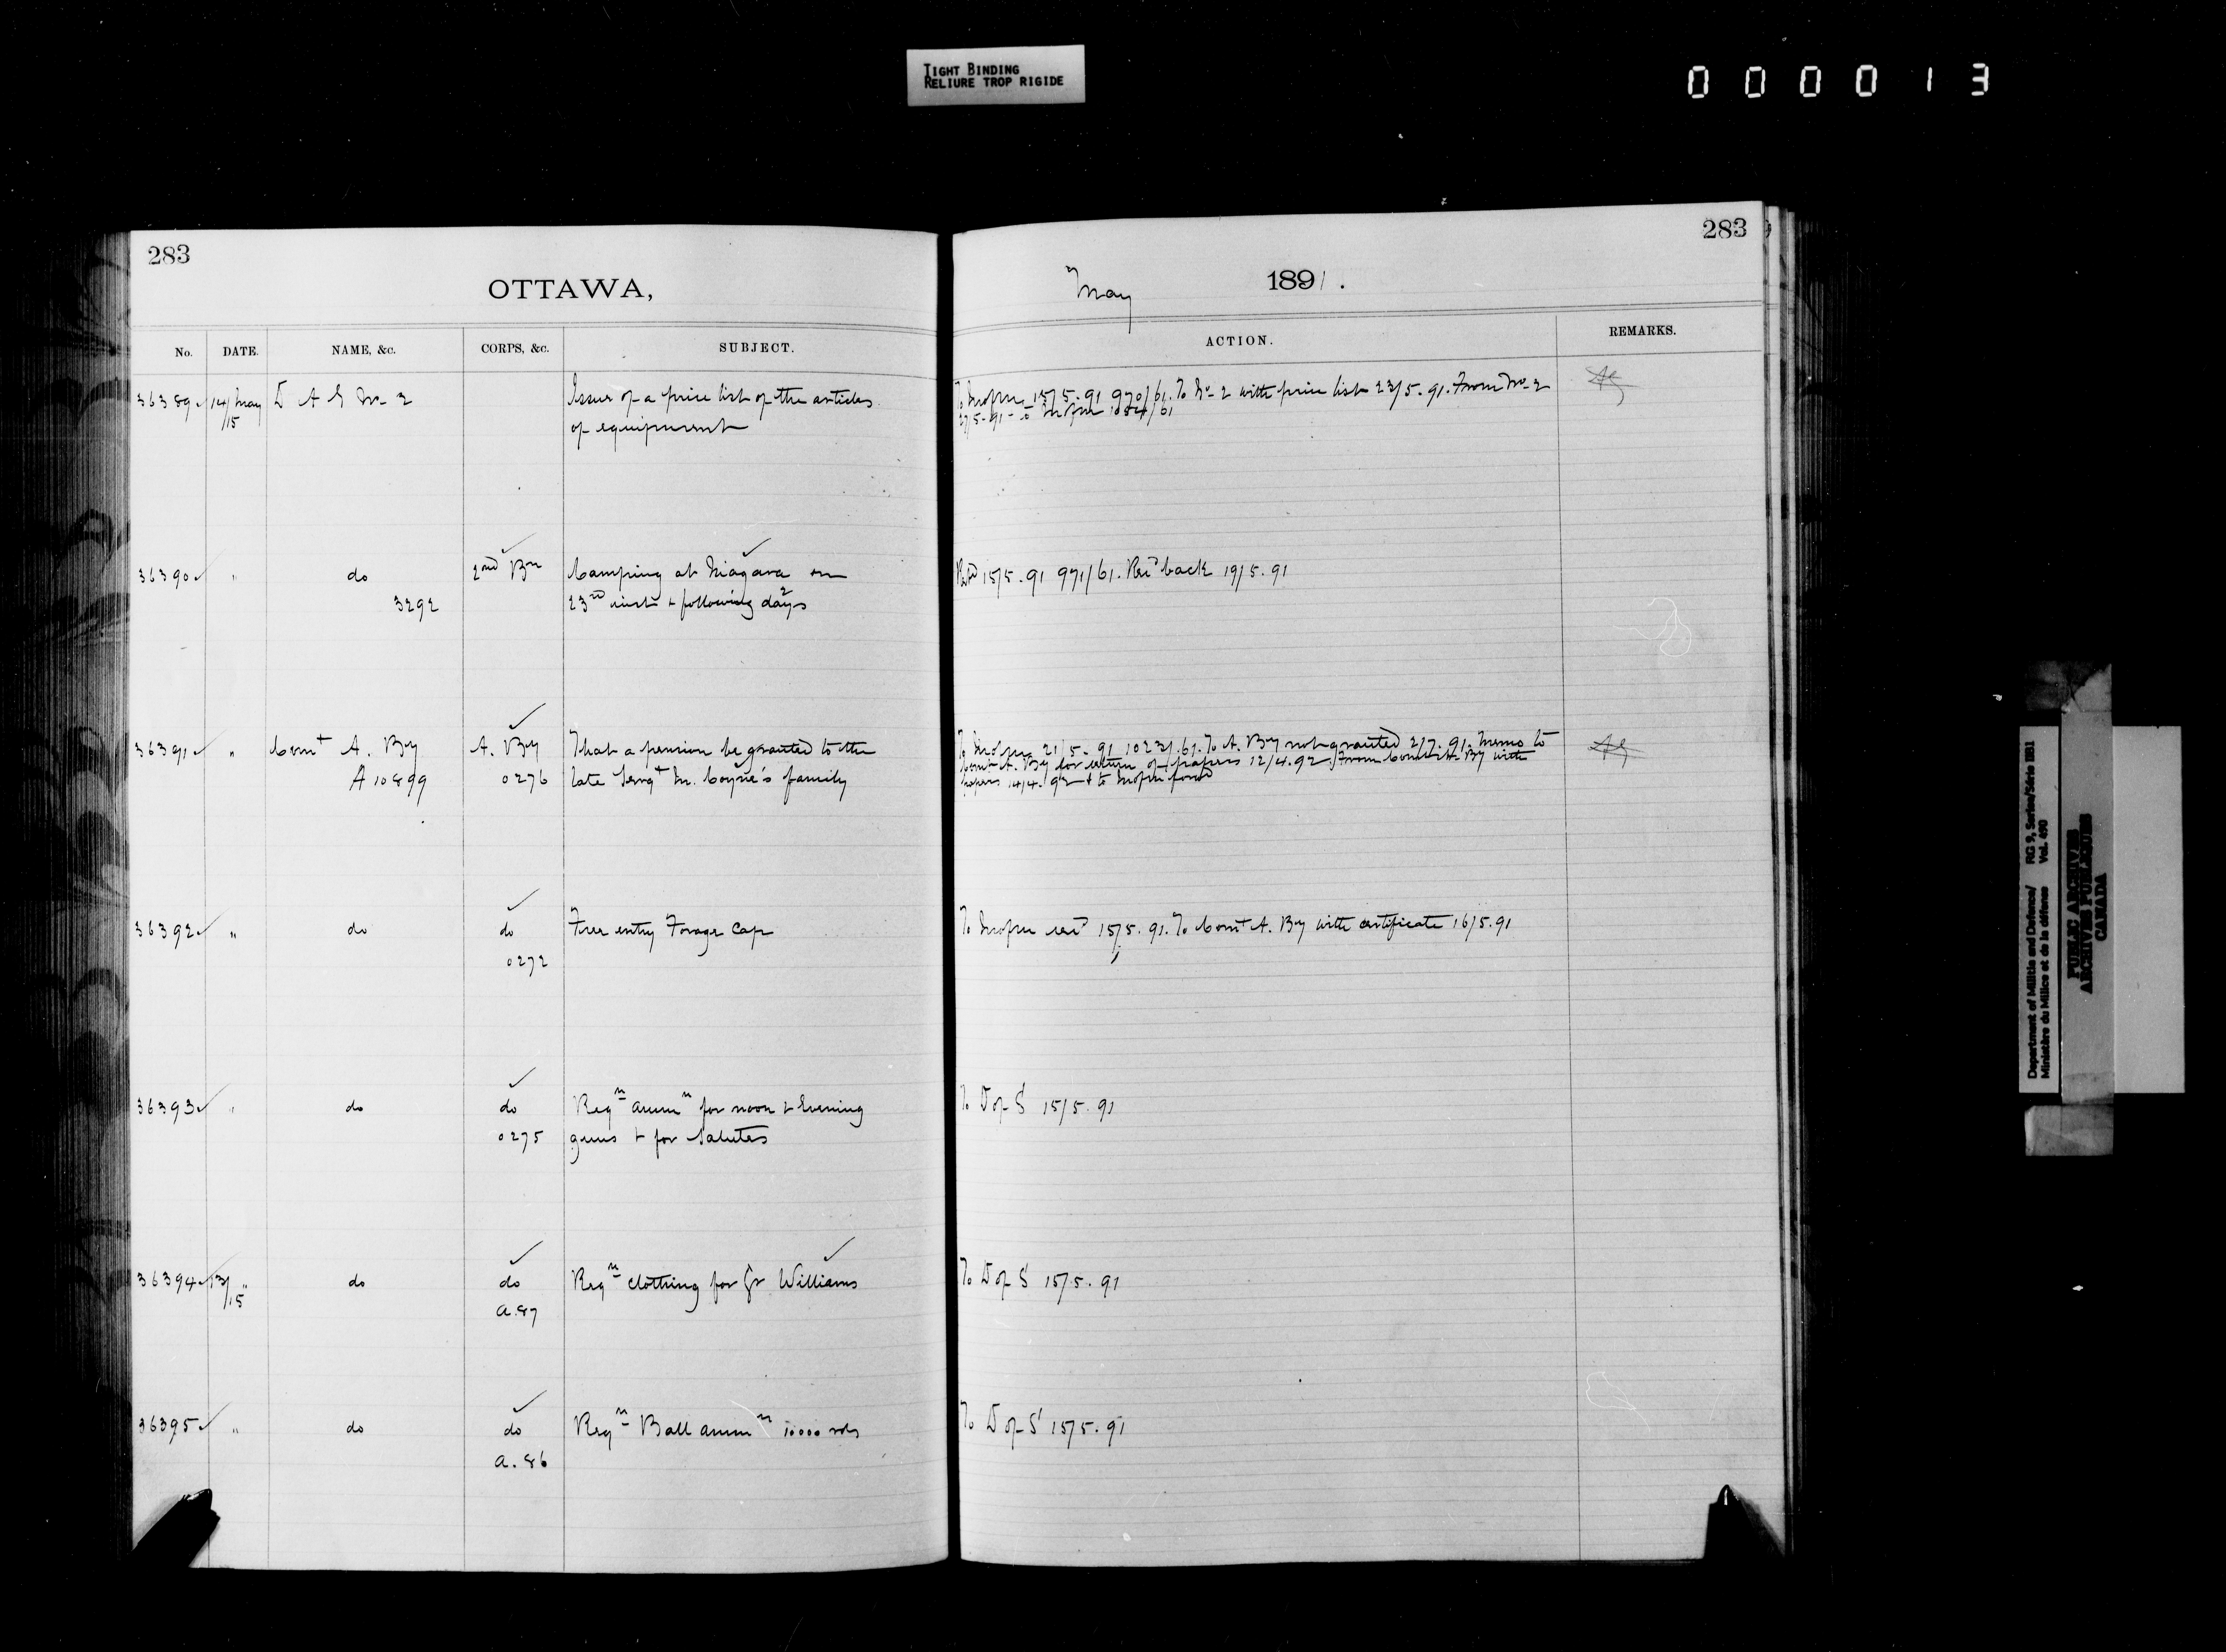 TIGHT BINDING
RELIURE TROP RIGIDE
000013
283
OTTAWA,
May 1891.
283
No. DATE. NAME, &c. CORPS, &c. SUBJECT. ACTION. REMARKS.
36389 14/May D A G No. 2 Issue of a price list of the articles
/15 of equipment
15/5.91 970/61. To No. 2 with price list 23/5.91. From No. 2
27/5.91
36390 " do 2nd Bn Camping at Niagara on
3292 23rd inst & following days
15/5.91 971/61. Recd back 19/5.91
36391 " Comt A. By A. By That a pension be granted to the
A10899 0276 late Sergt M. Coyne's family
21/5.91 1023/.61. To A. By not granted 2/7.91. Memo to
Comt A. By for return of papers 12/4.92. From Comt A. By with
papers 14/4.92 & to
36392 " do do Free entry Forage Cap
0272
To 15/5.91. To Comt A. By with certificate 16/5.91
36393 " do do Reqn ammn for noon & Evening
0275 guns & for Salutes
To D of S 15/5.91
36394 13/ " do do Reqn clothing for Gr Williams
/15 a.87
To D of S 15/5.91
36395 " do do Reqn Ball ammn 10000 rds
a.86
To D of S 15/5.91
Department of Militia and Defence/ RG 9, Series/Série IIB1
Ministère du Milice et de la défense Vol. 490
PUBLIC ARCHIVES
ARCHIVES PUBLIQUES
CANADA